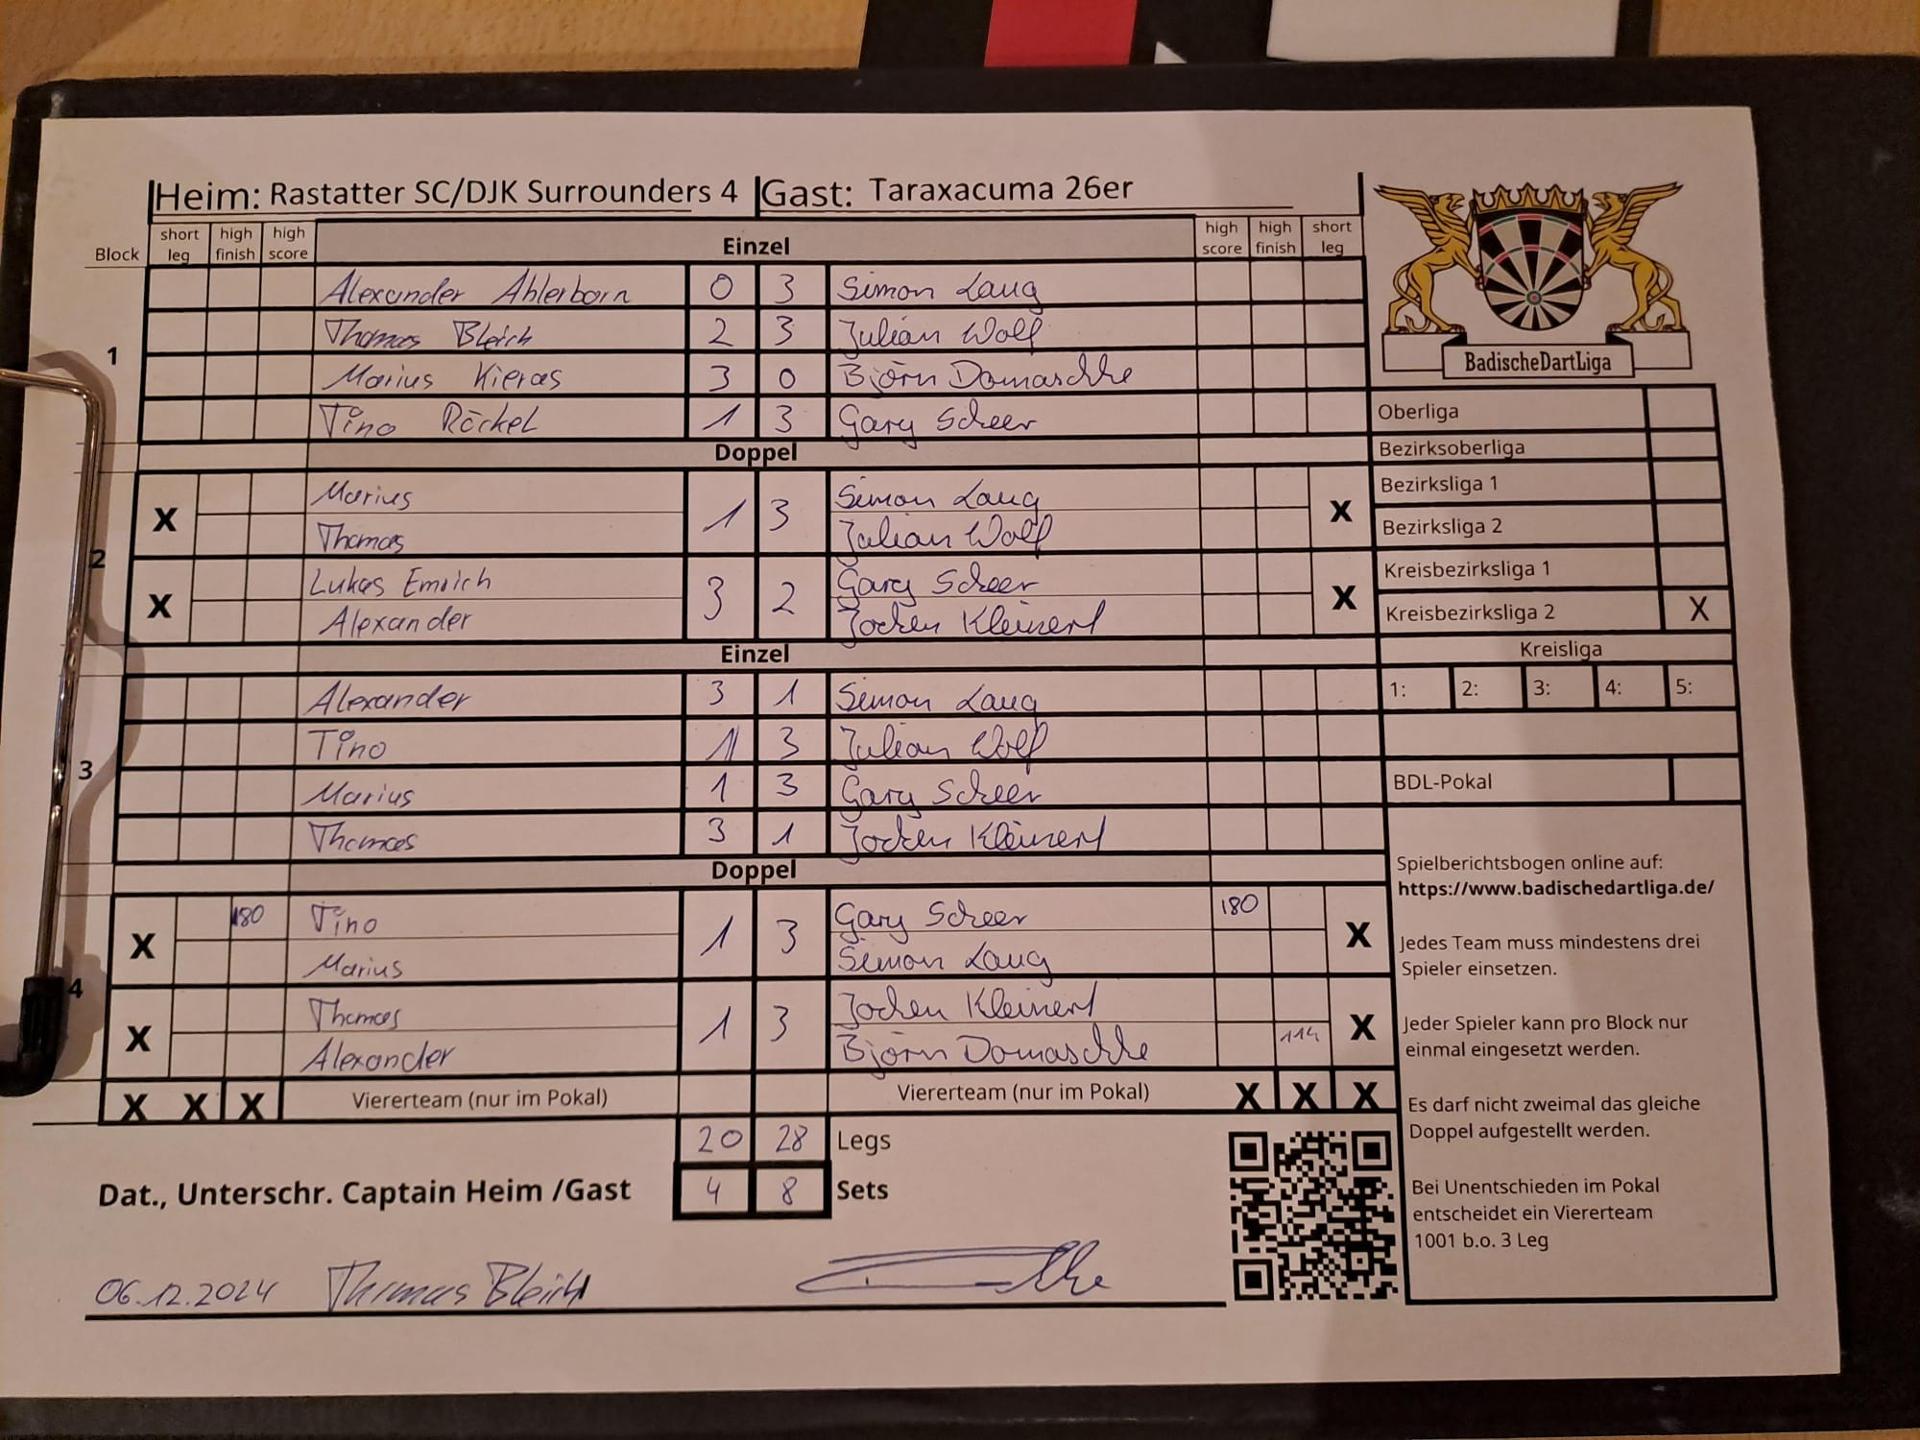 Heim: Rastatter SC/DJK Surrounders 4 Gast: Taraxacuma 26er
Block short leg high finish high score Einzel high score high finish short leg
BadischeDartLiga
1
Alexander Ahlerborn 0 3 Simon Laug
Thomas Bleich 2 3 Julian Wolf
Marius Kieras 3 0 Björn Domaschke
Tino Röckel 1 3 Gary Scheer
Doppel
2
X Marius 1 3 Simon Laug X
Thomas Julian Wolf
X Lukas Emrich 3 2 Gary Scheer X
Alexander Jochen Kleinert
Einzel
3
Alexander 3 1 Simon Laug
Tino 1 3 Julian Wolf
Marius 1 3 Gary Scheer
Thomas 3 1 Jochen Kleinert
Doppel
4
X 180 Tino 1 3 Gary Scheer 180 X
Marius Simon Laug
X Thomas 1 3 Jochen Kleinert X
Alexander Björn Domaschke 114
X X X Viererteam (nur im Pokal) Viererteam (nur im Pokal) X X X
20 28 Legs
Dat., Unterschr. Captain Heim /Gast 4 8 Sets
06.12.2024 Thomas Bleich
Oberliga
Bezirksoberliga
Bezirksliga 1
Bezirksliga 2
Kreisbezirksliga 1
Kreisbezirksliga 2 X
Kreisliga
1: 2: 3: 4: 5:
BDL-Pokal
Spielberichtsbogen online auf:
https://www.badischedartliga.de/
Jedes Team muss mindestens drei
Spieler einsetzen.
Jeder Spieler kann pro Block nur
einmal eingesetzt werden.
Es darf nicht zweimal das gleiche
Doppel aufgestellt werden.
Bei Unentschieden im Pokal
entscheidet ein Viererteam
1001 b.o. 3 Leg